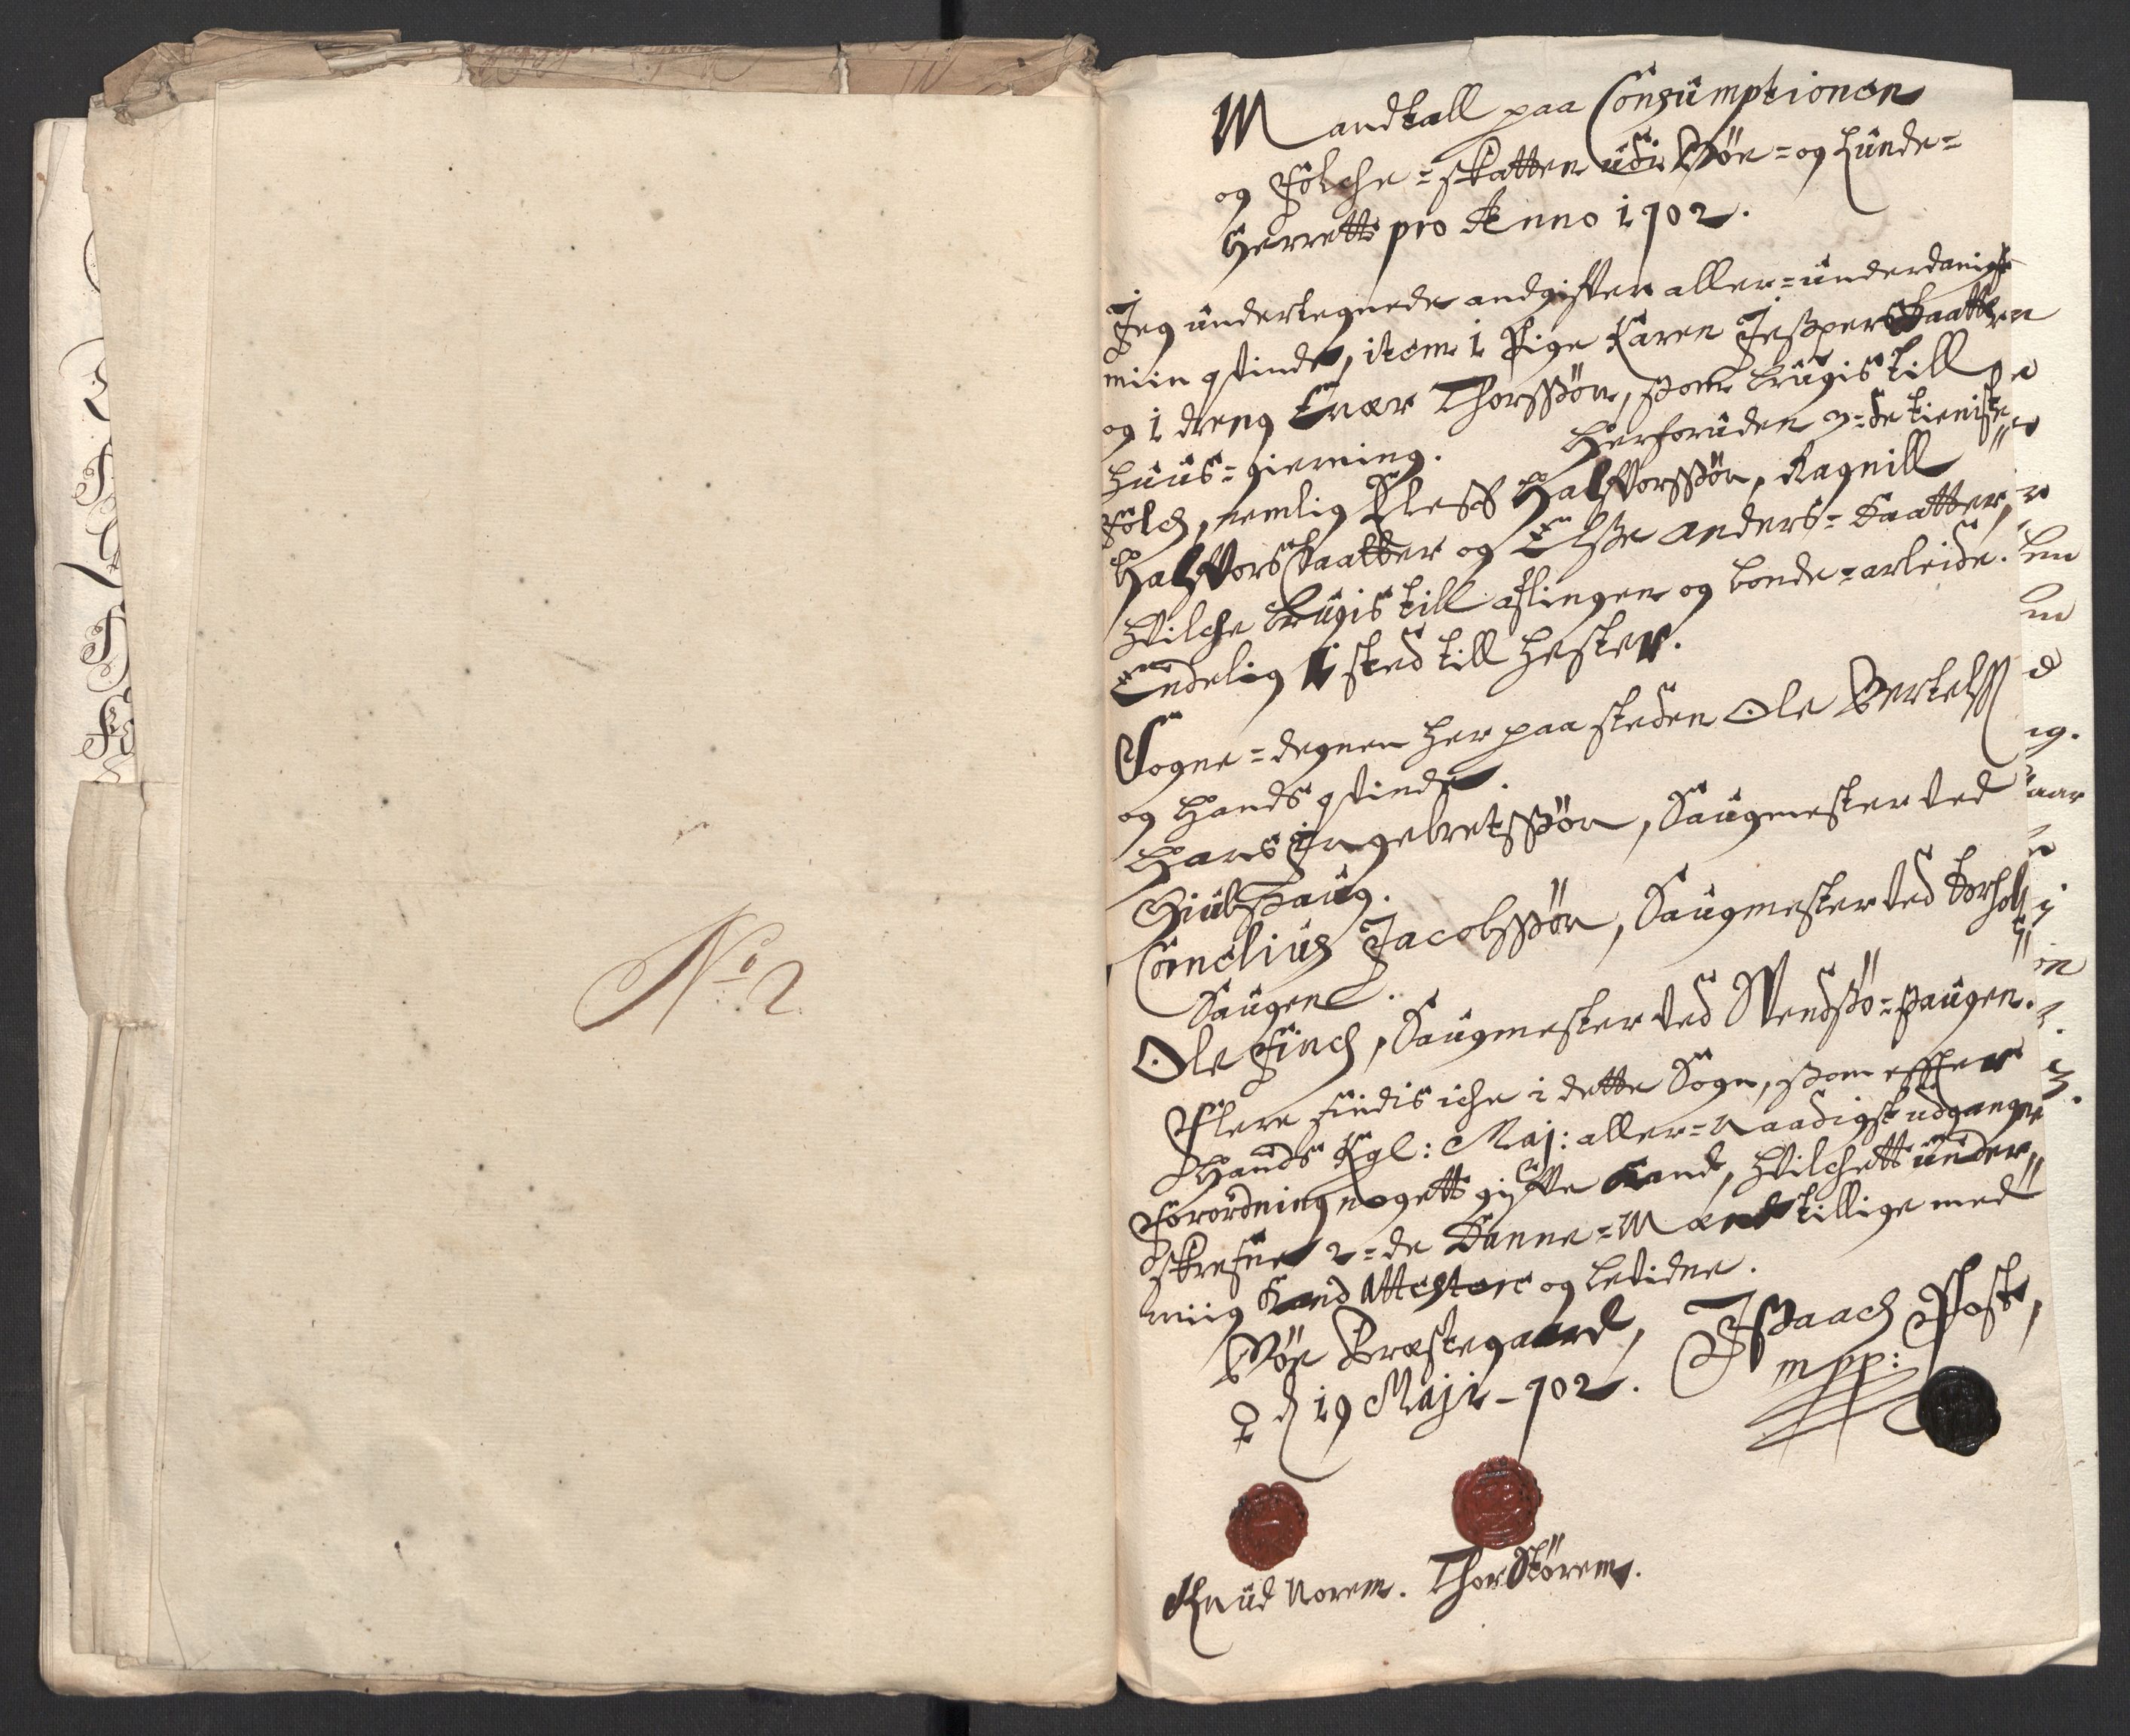 No 2
Mandtall paa Consumptionen
og Folche-skatten udi Bøe- og Lunde-
Herrett pro Anno 1702.
Jeg undertegnede andgifver aller-underdanigst
miin qvinde, item 1 Pige Karen Jespersdaatter
og 1 dreng Enær Thorssøn, som brugis till
huus-gierning. Herforuden 3-de tieniste
folch, nemlig Kless Halfvorssøn, Ragnill
Halfvorsdaatter og Elsse Anders-daatter,
hvilche brugis till aflingen og bonde-arbeide.
Endelig 1 sted till hester.
Sogne-degnen her paa steden Ole Bertelss
og hands qvinde.
Hans Ingebretssøn, Saugmester ved
Hiulssaug.
Cornelius Jacobssøn, Saugmester ved Borholt
Saugen.
Ole Finch, Saugmester ved Vendssø-saugen.
Flere findis iche i dette Sogn, som effter
Hands Kgl: Maj: aller-naadigst udgangne
forordning nogett gifve kand, hvilchett under
skrefne 2-de Danne-Mænd tillige med
miig kand Attestere og bevidne.
Bøe Præstegaard,
♀ d 19 Maji - 702.
Issaach Post,
mpp:
Knud Norem. Thor Størem.